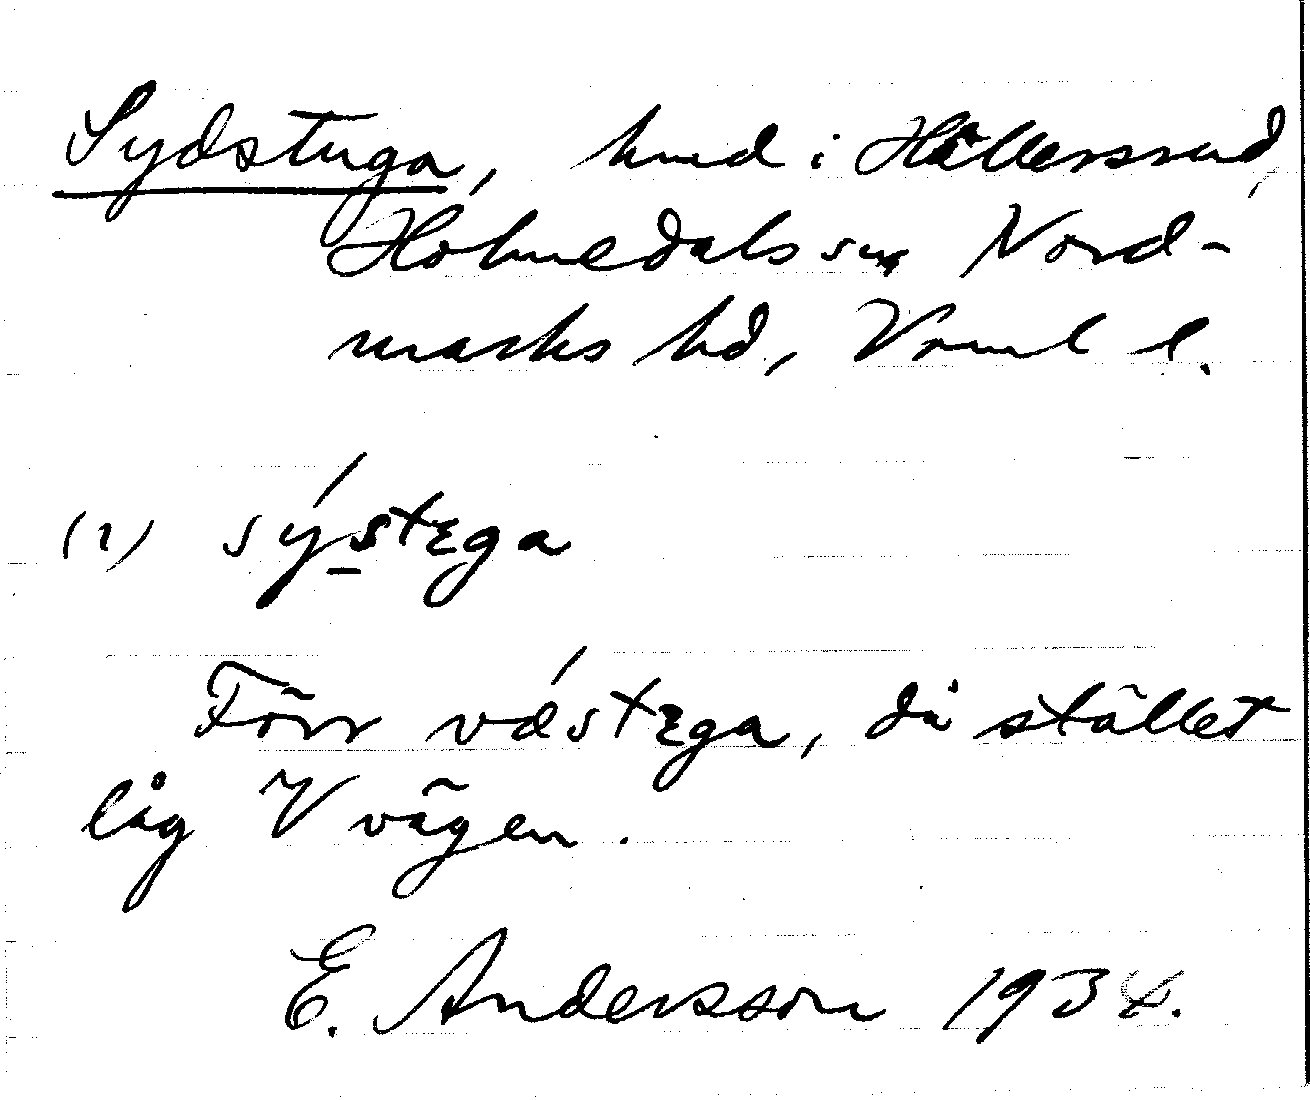 Sydstuga, hmd i Hällersrud,
Holmedals sn, Nord-
marks hd, Vrml l.
(1) sýstɛga
Förr vǽstɛga, då stället
låg V vägen.
E. Andersson 1934.